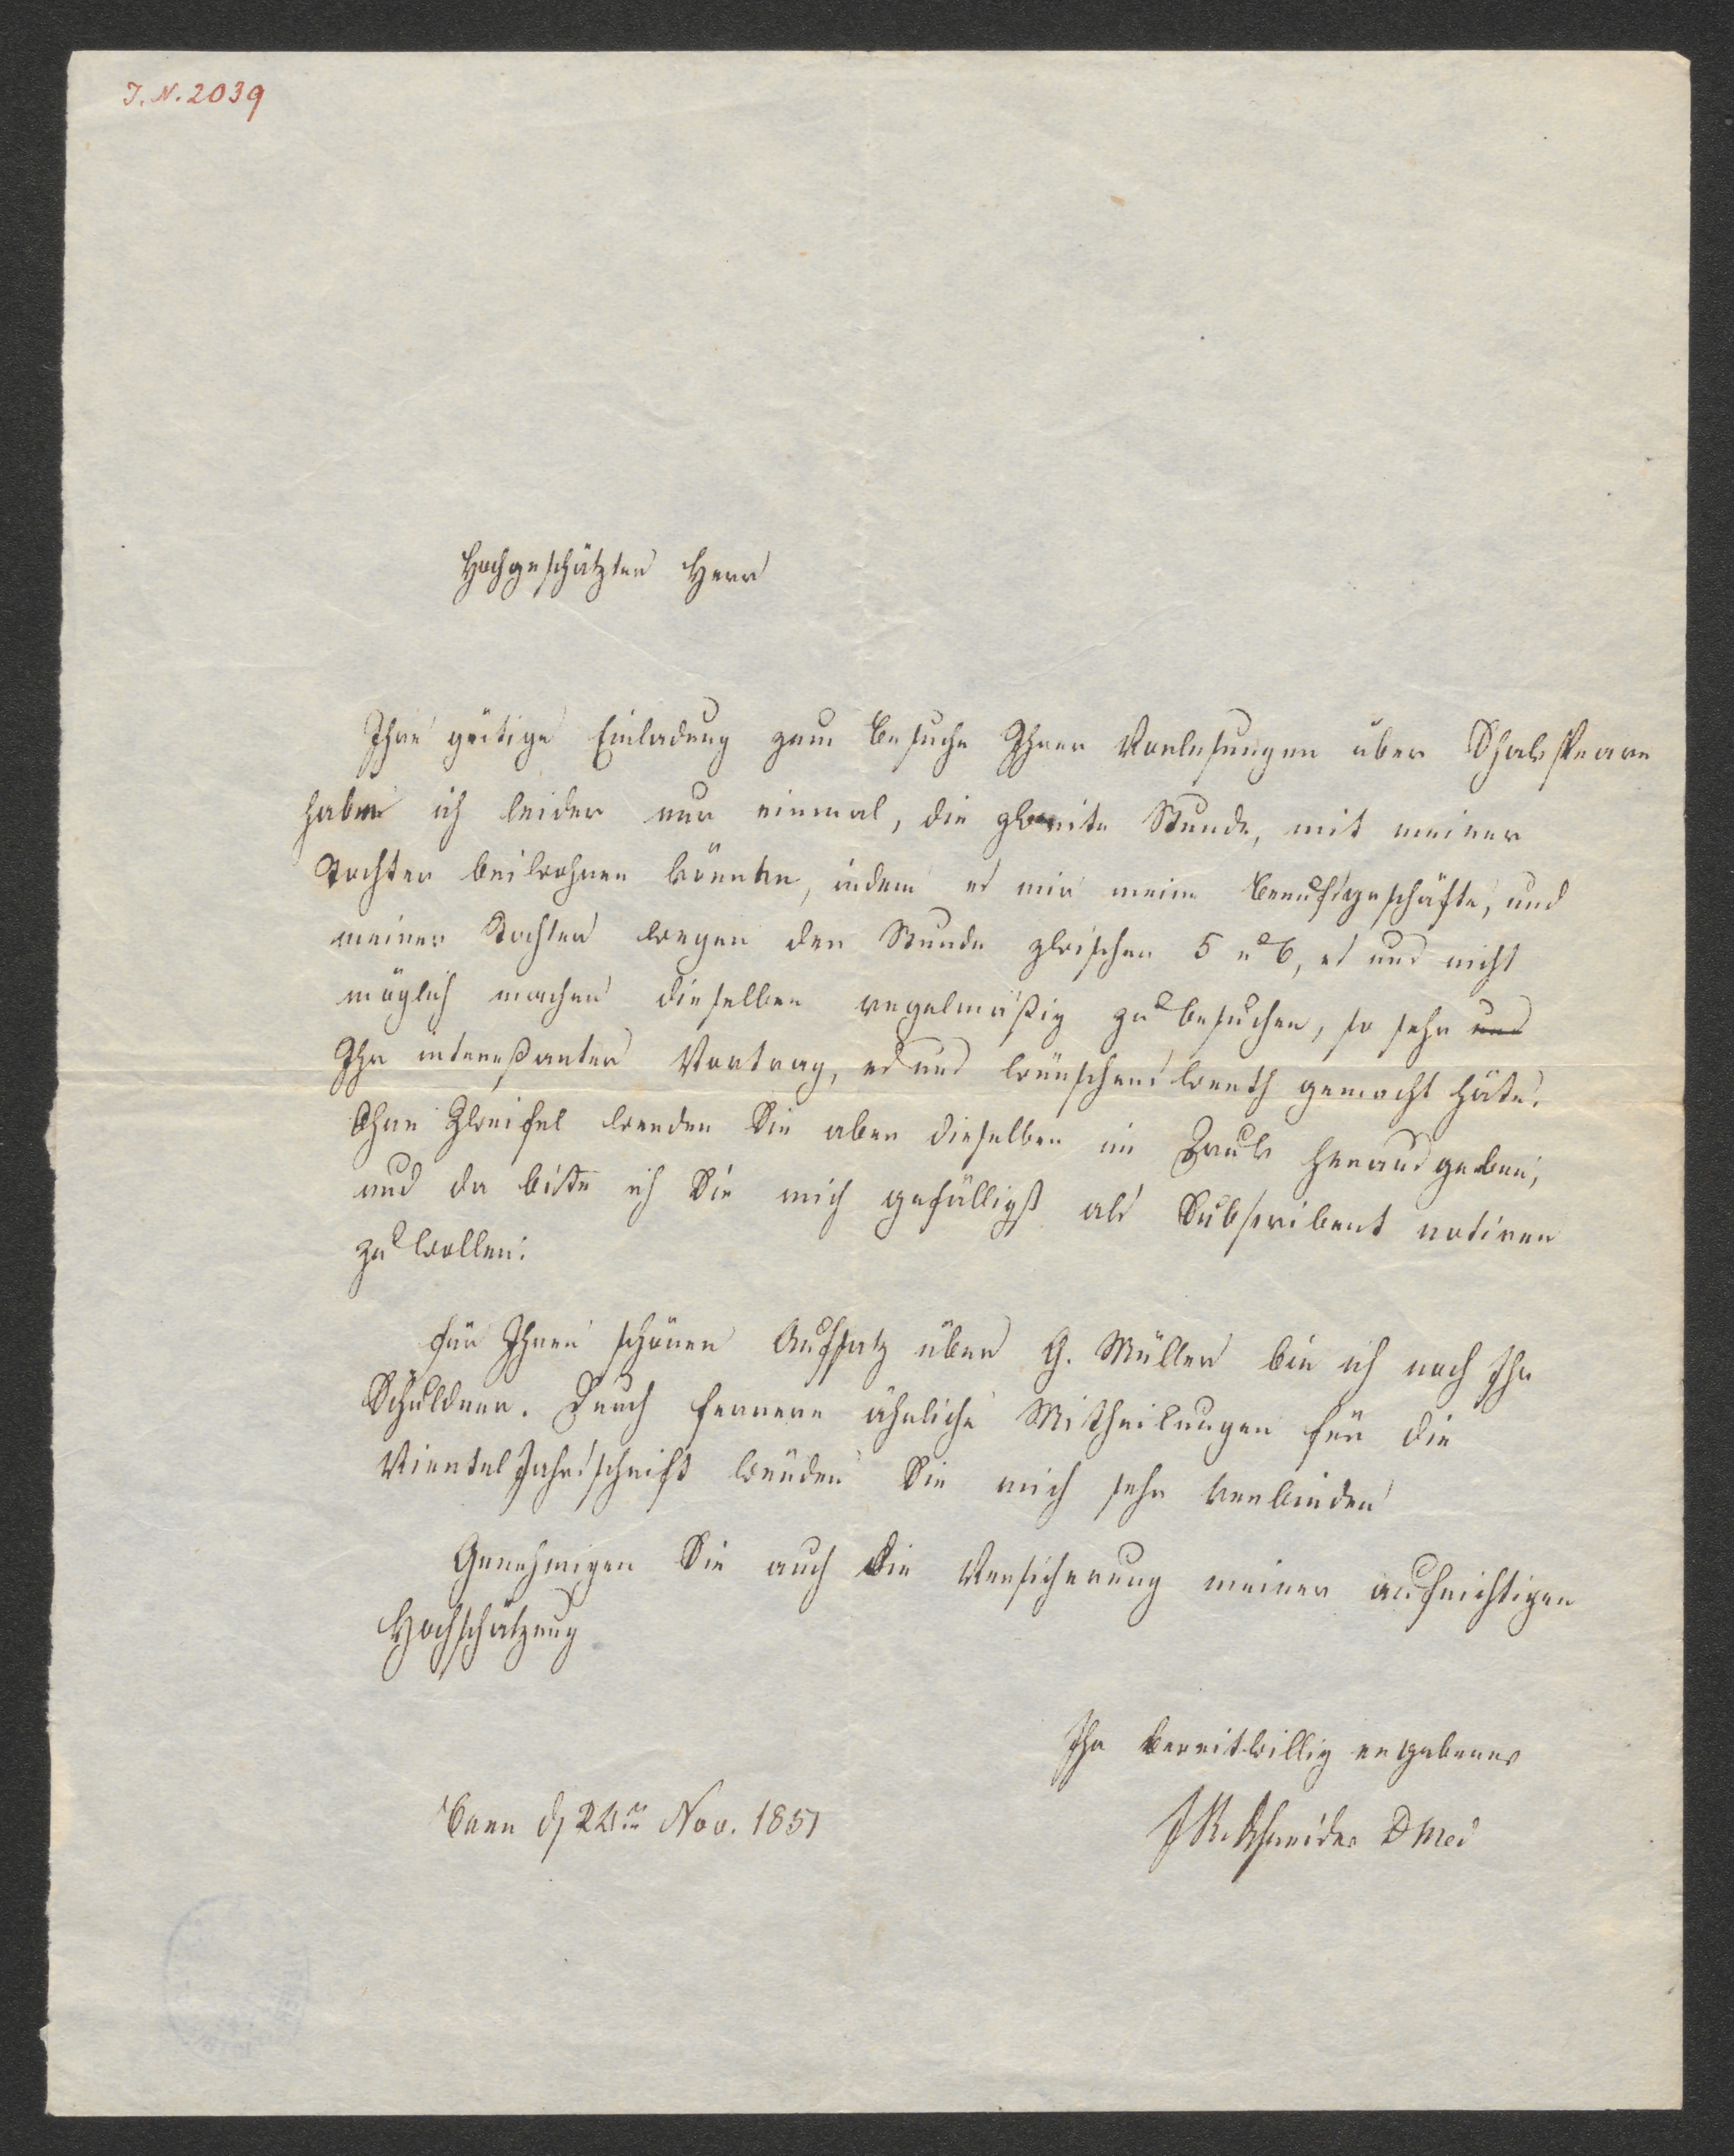 J. N. 2039
Hochgeschätzter Herr
Ihre gütige Einladung zum Besuche Ihrer Vorlesungen über Shakspeare
habe ich leider nur einmal, die zweite Stunde, mit meiner
Tochter beiwohnen können, indem es mir meine Berufsgeschäfte, und
meiner Tochter wegen der Stunde zwischen 5 u 6, es uns nicht
möglich machen dieselben regelmäßig zu besuchen, so sehr uns
Ihr intereßanter Vortrag, es uns wünschenswerth gemacht häte.
Ohne Zweifel werden Sie aber dieselben im Druk herausgeben,
und da bitte ich Sie mich gefälligst als Subscribent notiren
zu wollen.
für Ihren schönen Aufsatz über G. Müller bin ich noch Ihr
Schuldner. Durch fernere ähnliche Mittheilungen für die
Viertel Jahrsschrift würden Sie mich sehr verbinden
Genehmigen Sie auch die Versicherung meiner aufrichtigen
Hochschätzung
Ihr bereitwillig ergebener
Bern d 22ten Nov. 1851
J R Schneider D Med